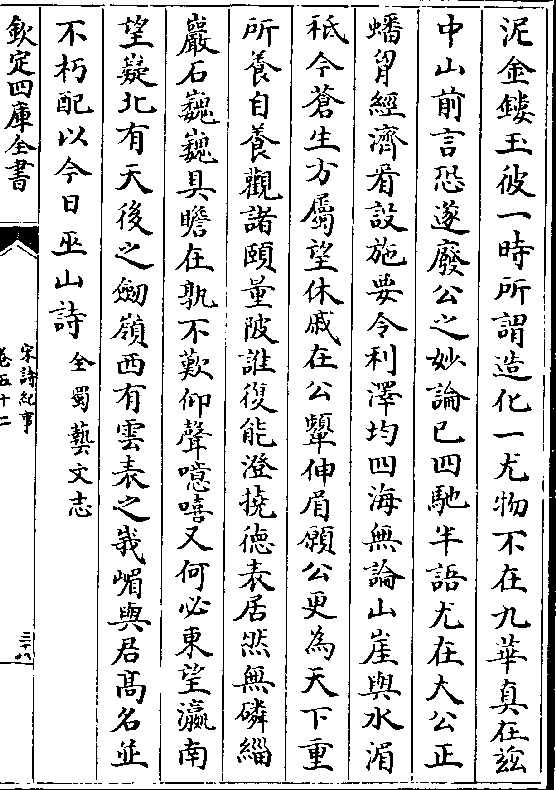 泥金鏤玉彼一時所謂造化一尤物不在九華真在兹
中山前言恐遂廢公之妙論已四馳半語尤在大公正
蟠胷經濟看設施要令利澤均四海無論山崖與水湄
秪今蒼生方屬望休戚在公顰伸眉願公更為天下重
所養自養觀諸頤量陂誰復能澄撓德表居然無磷緇
巖石巍巍具瞻在孰不歎仰聲噫嘻又何必東望瀛南
望嶷北有天後之劒嶺西有雲表之峩嵋與君髙名並
不朽配以今日巫山詩 全蜀藝文志
欽定四庫全書
宋詩紀事
卷五十二
三十八